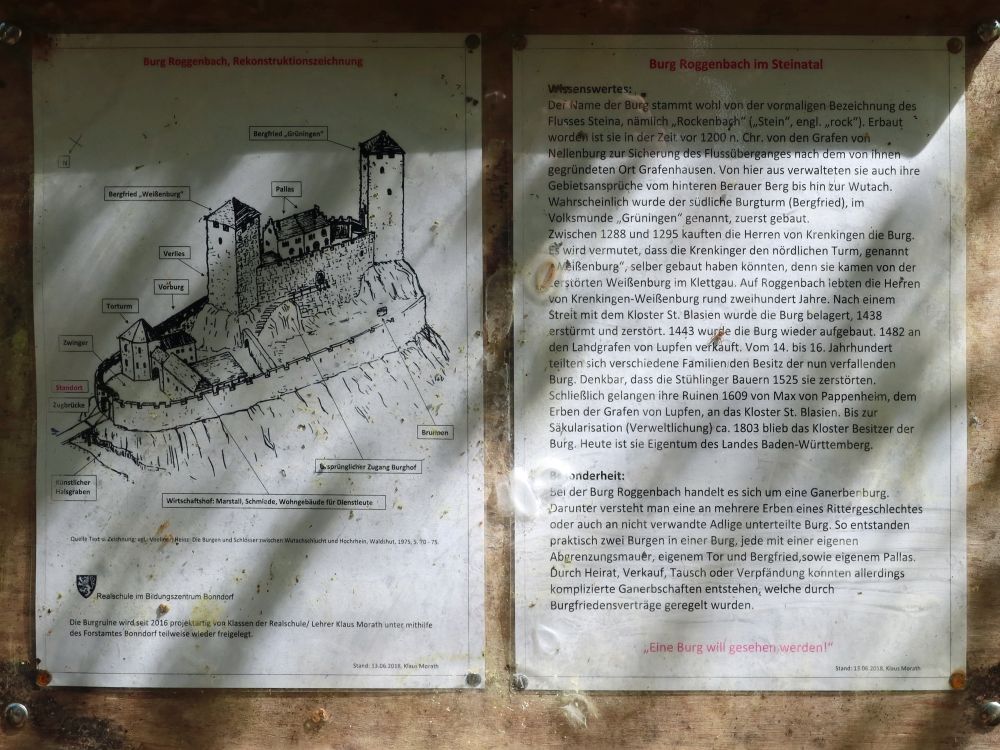 Burg Roggenbach, Rekonstruktionszeichnung
Bergfried „Grüningen"
N
Bergfried „Weißenburg"
Pallas
Verlies
Vorburg
Torturm
Zwinger
Standort
Zugbrücke
Künstlicher
Halsgraben
Brunnen
Ursprünglicher Zugang Burghof
Wirtschaftshof: Marstall, Schmiede, Wohngebäude für Dienstleute
Quelle Text u. Zeichnung: vgl. Voellner, Heinz: Die Burgen und Schlösser zwischen Wutachschlucht und Hochrhein, Waldshut, 1975, S. 70 - 75.
Realschule im Bildungszentrum Bonndorf
Die Burgruine wird seit 2016 projektartig von Klassen der Realschule/ Lehrer Klaus Morath unter mithilfe
des Forstamtes Bonndorf teilweise wieder freigelegt.
Stand: 13.06.2018, Klaus Morath
Burg Roggenbach im Steinatal
Wissenswertes:
Der Name der Burg stammt wohl von der vormaligen Bezeichnung des
Flusses Steina, nämlich „Rockenbach" („Stein", engl. „rock"). Erbaut
worden ist sie in der Zeit vor 1200 n. Chr. von den Grafen von
Nellenburg zur Sicherung des Flussüberganges nach dem von ihnen
gegründeten Ort Grafenhausen. Von hier aus verwalteten sie auch ihre
Gebietsansprüche vom hinteren Berauer Berg bis hin zur Wutach.
Wahrscheinlich wurde der südliche Burgturm (Bergfried), im
Volksmunde „Grüningen" genannt, zuerst gebaut.
Zwischen 1288 und 1295 kauften die Herren von Krenkingen die Burg.
Es wird vermutet, dass die Krenkinger den nördlichen Turm, genannt
„Weißenburg", selber gebaut haben könnten, denn sie kamen von der
zerstörten Weißenburg im Klettgau. Auf Roggenbach lebten die Herren
von Krenkingen-Weißenburg rund zweihundert Jahre. Nach einem
Streit mit dem Kloster St. Blasien wurde die Burg belagert, 1438
erstürmt und zerstört. 1443 wurde die Burg wieder aufgebaut. 1482 an
den Landgrafen von Lupfen verkauft. Vom 14. bis 16. Jahrhundert
teilten sich verschiedene Familien den Besitz der nun verfallenden
Burg. Denkbar, dass die Stühlinger Bauern 1525 sie zerstörten.
Schließlich gelangen ihre Ruinen 1609 von Max von Pappenheim, dem
Erben der Grafen von Lupfen, an das Kloster St. Blasien. Bis zur
Säkularisation (Verweltlichung) ca. 1803 blieb das Kloster Besitzer der
Burg. Heute ist sie Eigentum des Landes Baden-Württemberg.
Besonderheit:
Bei der Burg Roggenbach handelt es sich um eine Ganerbenburg.
Darunter versteht man eine an mehrere Erben eines Rittergeschlechtes
oder auch an nicht verwandte Adlige unterteilte Burg. So entstanden
praktisch zwei Burgen in einer Burg, jede mit einer eigenen
Abgrenzungsmauer, eigenem Tor und Bergfried,sowie eigenem Pallas.
Durch Heirat, Verkauf, Tausch oder Verpfändung konnten allerdings
komplizierte Ganerbschaften entstehen, welche durch
Burgfriedensverträge geregelt wurden.
„Eine Burg will gesehen werden!"
Stand: 13.06.2018, Klaus Morath